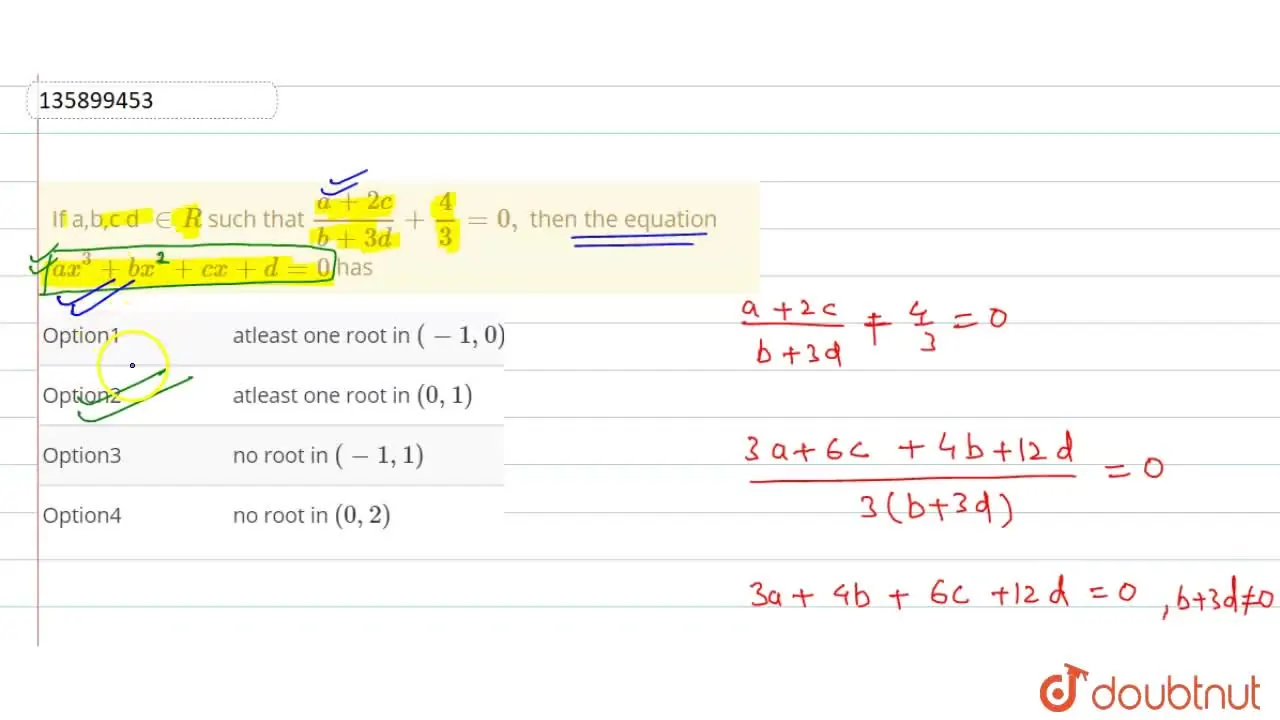 135899453
If a,b,c d ∈ R such that (a + 2c)/(b + 3d) + 4/3 = 0, then the equation
ax³ + bx² + cx + d = 0 has
Option1 atleast one root in (−1, 0)
Option2 atleast one root in (0, 1)
Option3 no root in (−1, 1)
Option4 no root in (0, 2)
(a + 2c)/(b + 3d) + 4/3 = 0
(3a + 6c + 4b + 12d)/(3(b + 3d)) = 0
3a + 4b + 6c + 12d = 0 , b+3d≠0
doubtnut